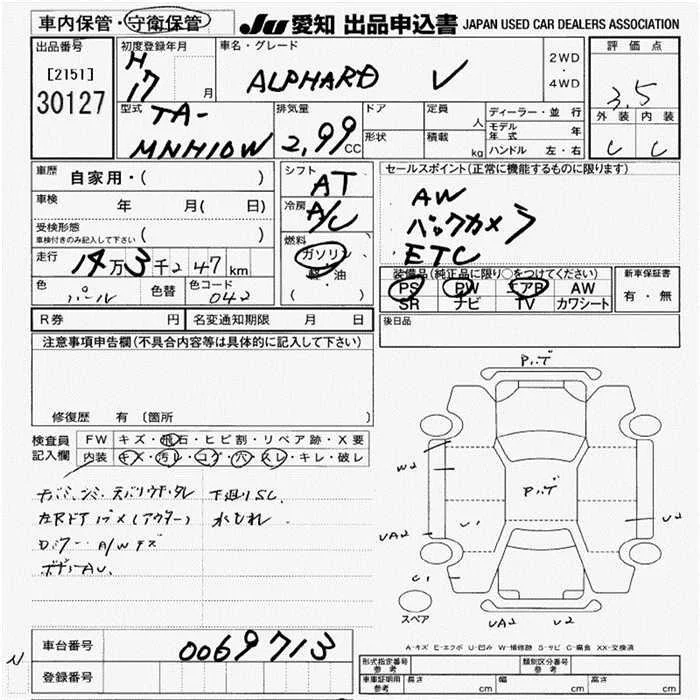 車内保管・守衛保管
JU 愛知 出品申込書 JAPAN USED CAR DEALERS ASSOCIATION
出品番号
[2151]
30127
初度登録年月
H
17 月
車名・グレード
ALPHARD V
2WD
・
4WD
評価点
3.5
外装 内装
C C
型式
TA-
MNH10W
排気量
2,99 CC
ドア
形状
定員 人
積載 kg
ディーラー・並行
モデル年式 年
ハンドル 左・右
車歴 自家用・( )
車検 年 月( 日)
受検形態
車検付きのみ記入して下さい ( )
走行 14万3千247km
色 パール 色替 色コード 042
シフト
AT
冷房
A/C
燃料
ガソリン
軽・油
( )
セールスポイント(正常に機能するものに限ります)
AW
バックカメラ
ETC
装備品(純正品に限り○をつけてください)
PS PW エアB AW
SR ナビ TV カワシート
新車保証書
有・無
R券 円 名変通知期限 月 日
後日品
注意事項申告欄(不具合内容等は具体的に記入して下さい)
修復歴 有 〔箇所
検査員
記入欄
FW キズ・飛石・ヒビ割・リペア跡・X要
内装 キズ・汚レ・コゲ・穴・スレ・キレ・破レ
下廻りSC
A/Wキズ
W2
UA2
U1
C1
UA2
U2
スペア
A-キズ E-エクボ U-凹み W-補修跡 S-サビ C-腐食 XX-交換済
車台番号 0069713
登録番号
N
形式指定番号
参考
類別区分番号
参考
車庫証明用
参考
長さ cm 幅 cm 高さ cm